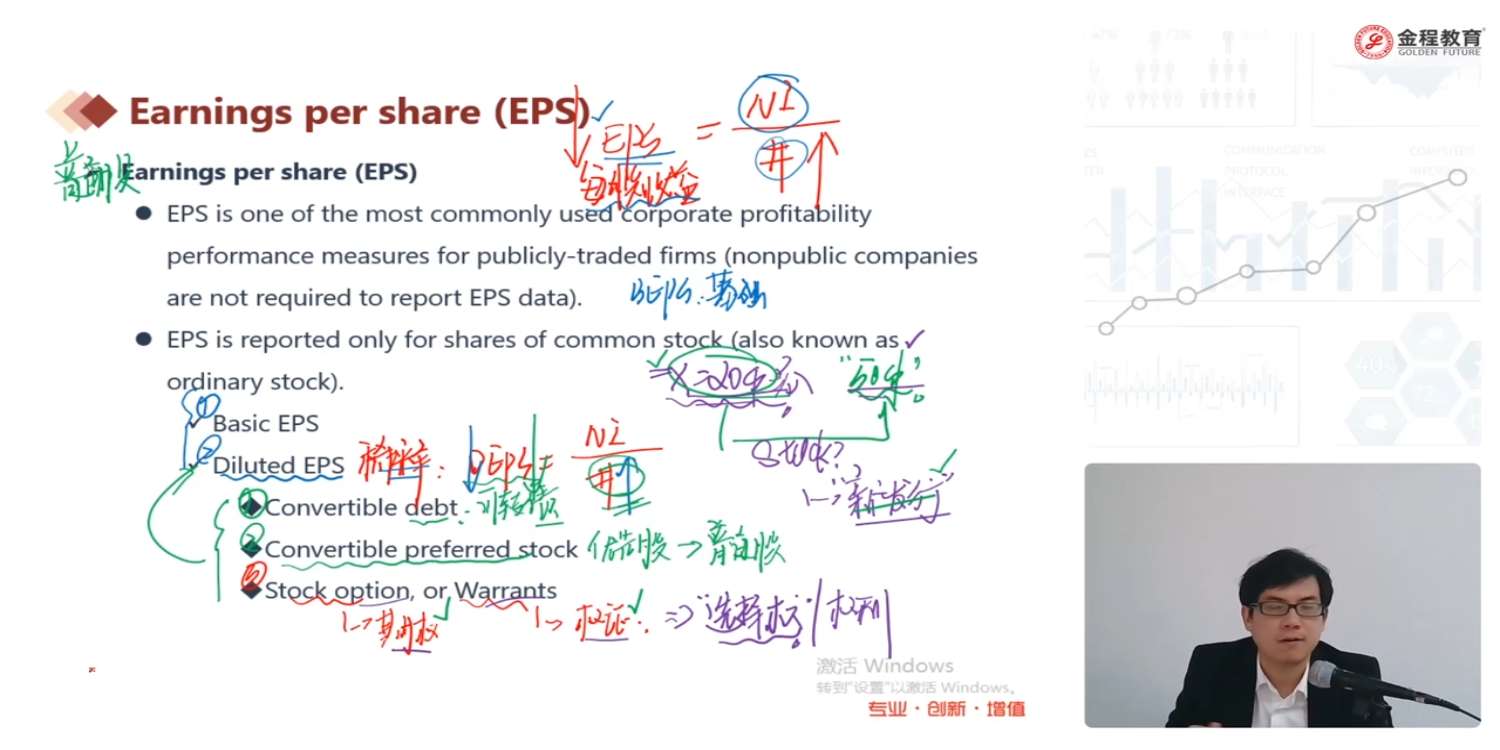 金程教育
GOLDEN FUTURE
Earnings per share (EPS)
EPS = NI / #
每股收益
普通股
Earnings per share (EPS)
EPS is one of the most commonly used corporate profitability
performance measures for publicly-traded firms (nonpublic companies
are not required to report EPS data).
BEPS: 基础
EPS is reported only for shares of common stock (also known as
ordinary stock).
"50块"
① Basic EPS
② Diluted EPS
稀释率: DEPS = NI / #
Stock?
"新发行"
① Convertible debt: 可转债
② Convertible preferred stock 优先股 → 普通股
③ Stock option, or Warrants
期权
权证: ⇒ "选择权" 权利
激活 Windows
转到“设置”以激活 Windows。
专业·创新·增值